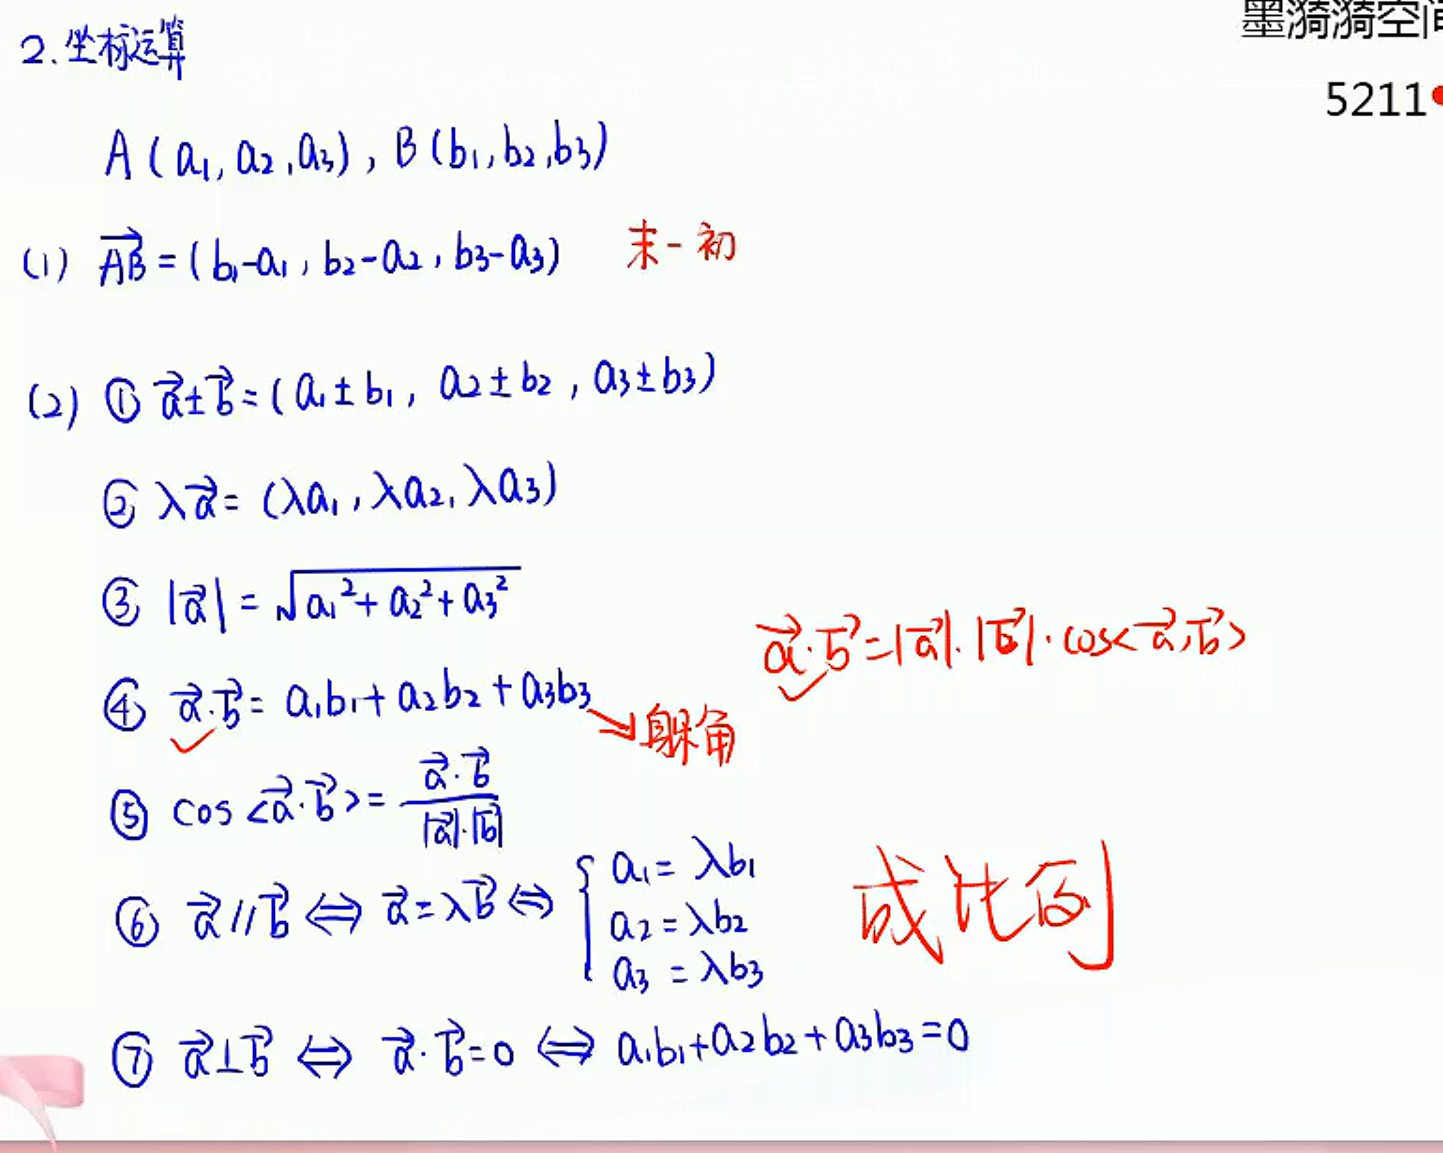 墨漪漪空间
5211
2.坐标运算
A(a₁,a₂,a₃),B(b₁,b₂,b₃)
(1) \overrightarrow{AB}=(b₁-a₁,b₂-a₂,b₃-a₃) 末-初
(2) ① \vec{a}±\vec{b}=(a₁±b₁,a₂±b₂,a₃±b₃)
② λ\vec{a}=(λa₁,λa₂,λa₃)
③ |\vec{a}|=\sqrt{a₁²+a₂²+a₃²}
\vec{a}·\vec{b}=|\vec{a}|·|\vec{b}|·cos<\vec{a},\vec{b}>
④ \vec{a}·\vec{b}=a₁b₁+a₂b₂+a₃b₃ →躲角
⑤ cos<\vec{a}·\vec{b}>=\frac{\vec{a}·\vec{b}}{|\vec{a}|·|\vec{b}|}
⑥ \vec{a}//\vec{b}⇔\vec{a}=λ\vec{b}⇔{a₁=λb₁
a₂=λb₂
a₃=λb₃
成比例
⑦ \vec{a}⊥\vec{b}⇔\vec{a}·\vec{b}=0⇔a₁b₁+a₂b₂+a₃b₃=0